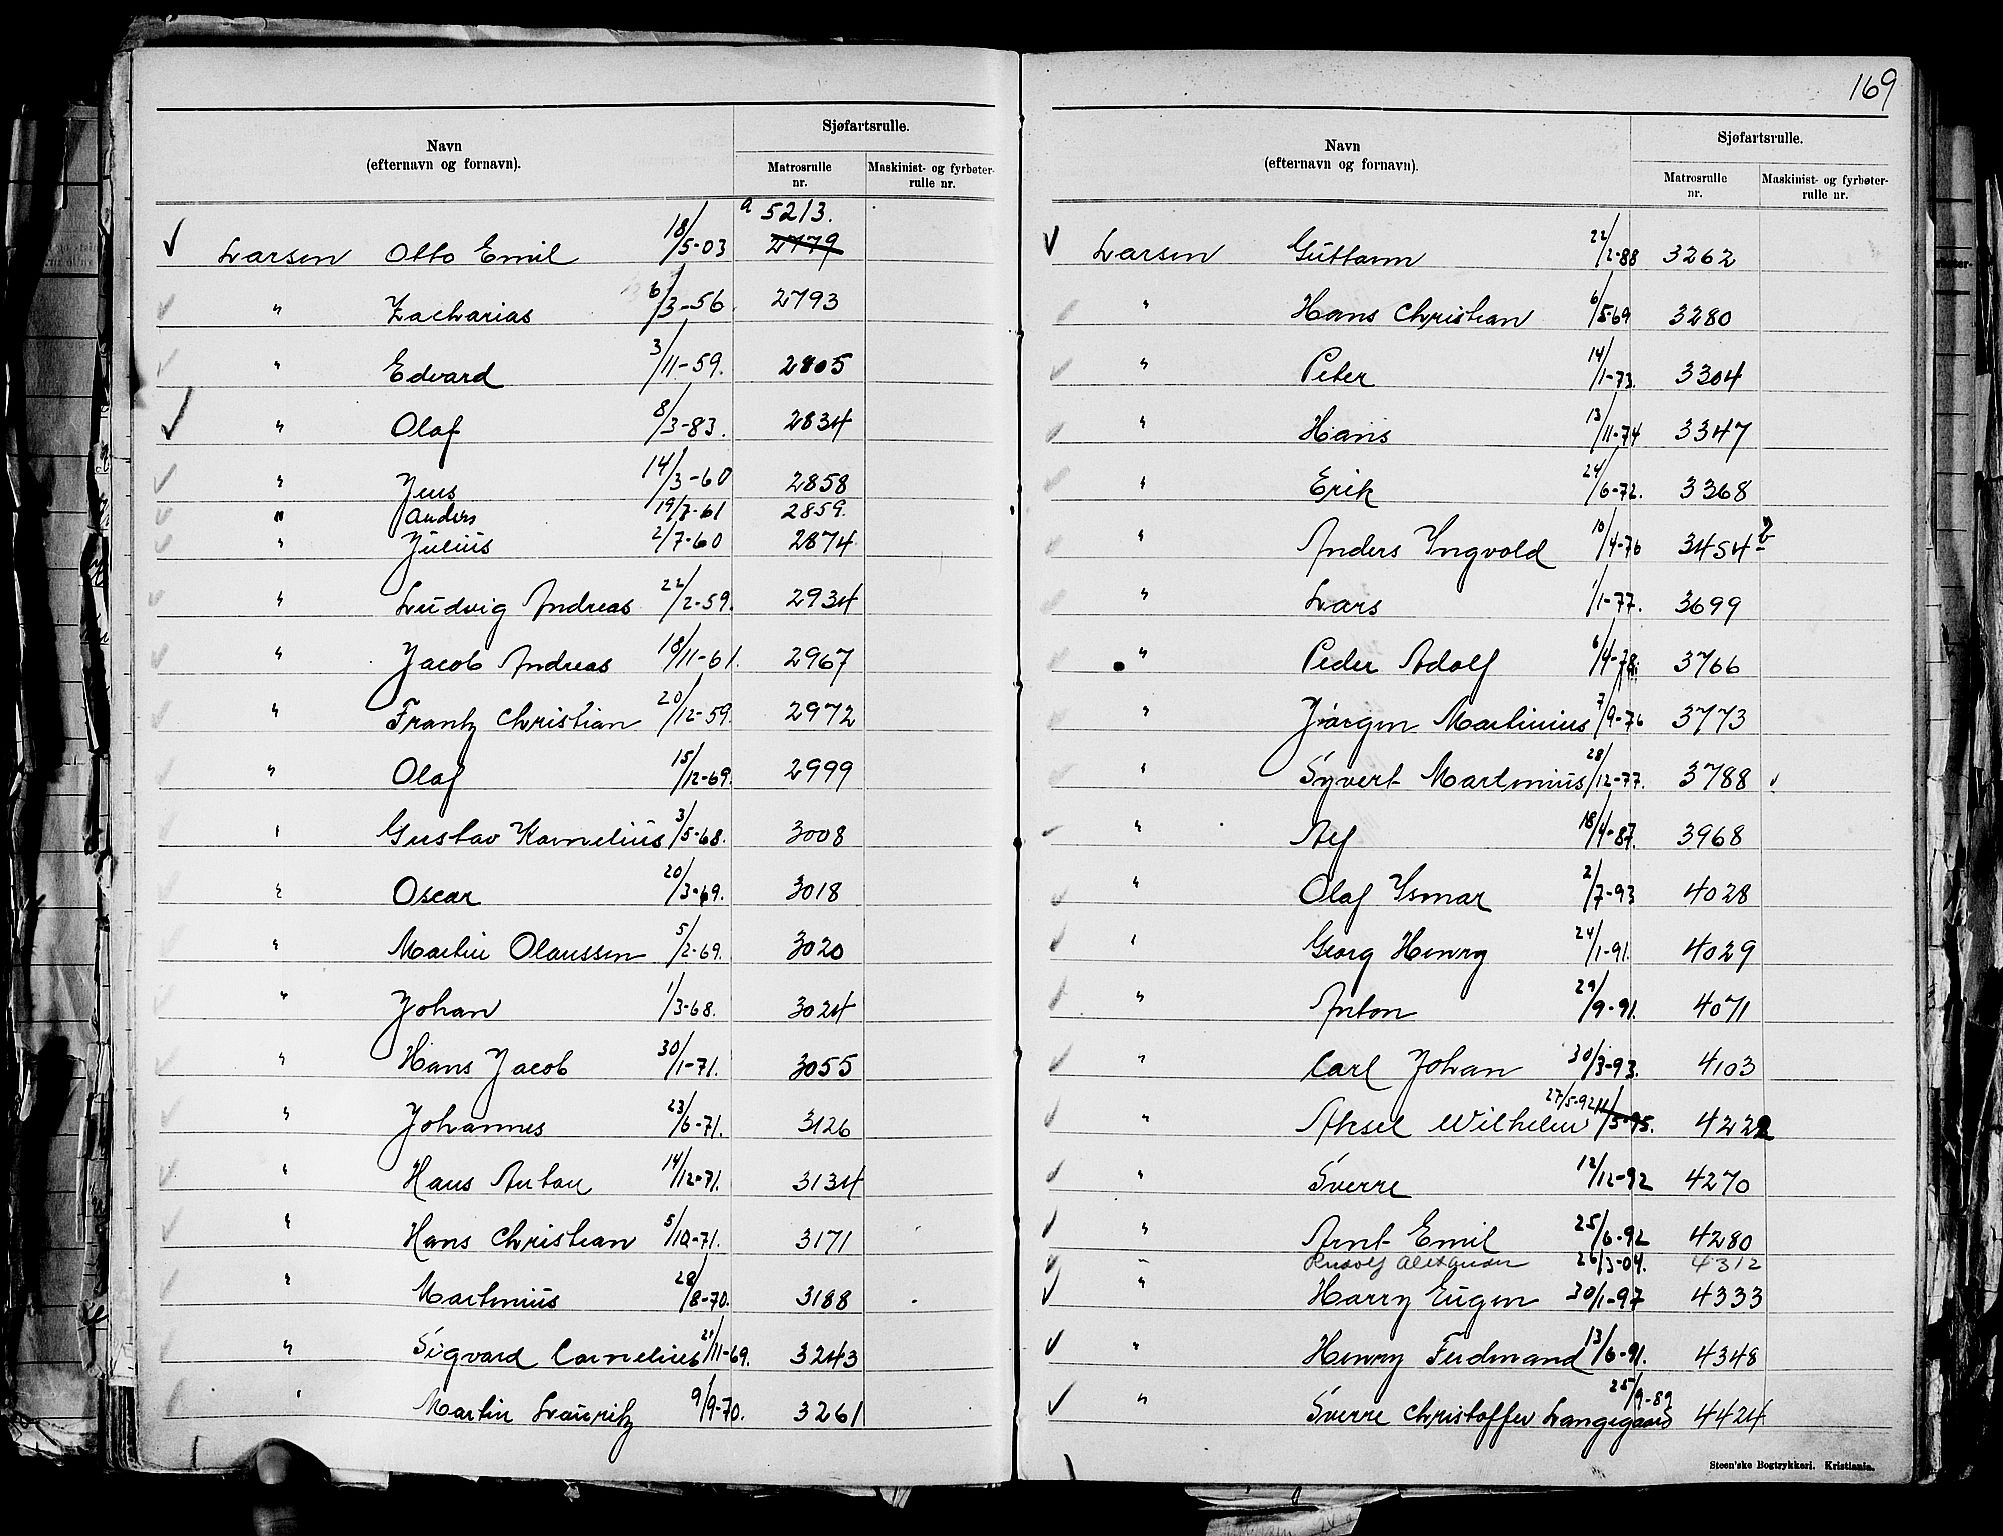 Navn
(efternavn og fornavn).
Sjøfartsrulle.
Matrosrulle
nr.
Maskinist- og fyrbøter-
rulle nr.
a 5213.
Larsen Otto Emil 18/5-03 2779
" Zacharias 6/3-56. 2793
" Edvard 3/11-59. 2805
" Olaf 8/3-83. 2834
" Jens 14/3-60 2858
" Anders 19/7-61 2859.
" Julius 2/7-60 2874
" Ludvig Andreas 22/2-59. 2934
" Jacob Andreas 18/11-61. 2967
" Frantz Christian 20/12-59. 2972
" Olaf 15/12-69. 2999
" Gustav Kornelius 3/5-68. 3008
" Oscar 20/3-69. 3018
" Martin Olaussen 5/2-69. 3020
" Johan 1/3-68. 3024
" Hans Jacob 30/1-71. 3055
" Johannes 23/6-71. 3126
" Hans Anton 14/12-71. 3134
" Hans Christian 5/10-71. 3171
" Martinius 28/8-70. 3188
" Sigvard Cornelius 21/11-69. 3243
" Martin Lauritz 9/9-70. 3261
169
Navn
(efternavn og fornavn).
Sjøfartsrulle.
Matrosrulle
nr.
Maskinist- og fyrbøter-
rulle nr.
Larsen Guttorm 22/2-88 3262
" Hans Christian 6/5-69 3280
" Peter 14/1-73. 3304
" Hans 13/11-74 3347
" Erik 24/6-72. 3368
" Anders Yngvold 10/4-76 3454 b
" Lars 1/1-77. 3699
" Peder Adolf 6/4-78. 3766
" Jørgen Martinius 7/9-76 3773
" Syvert Martinius 28/12-77. 3788
" Alf 18/4-87. 3968
" Olaf Ismar 2/7-93 4028
" Georg Henry 24/1-91. 4029
" Anton 29/9-91. 4071
" Carl Johan 30/3-93. 4103
27/5-92
" Aksel Wilhelm 11/5-95. 4222
" Sverre 12/12-92 4270
" Arnt Emil 25/6-92 4280
" Rudolf Alexander 26/3-04. 4312
" Harry Eugen 30/1-97 4333
" Henry Ferdinand 13/6-91. 4348
" Sverre Christoffer Langegaard 25/9-89 4424
Steen'ske Bogtrykkeri. Kristiania.